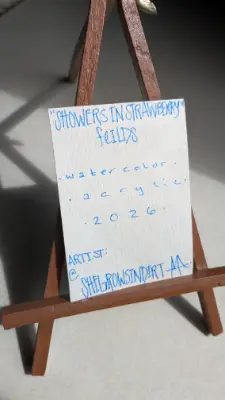 "SHOWERS IN STRAWBERRY"
feilDS
· water color ·
· acrylic ·
· 2026 ·
ARTIST:
@SHEGROWSINDIRT